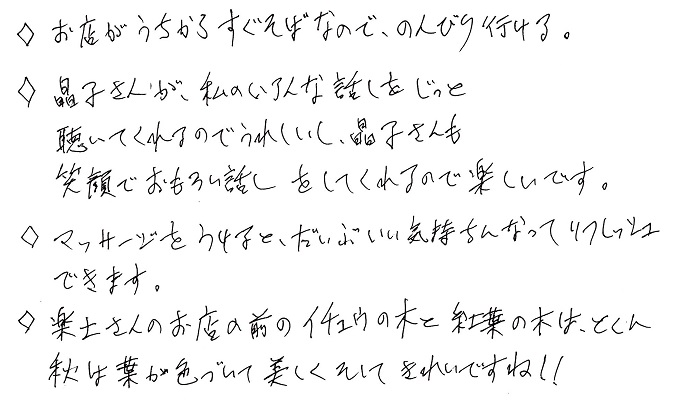 ◇ お店がうちからすぐそばなので、のんびり行ける。
◇ 晶子さんが、私のいろんな話しをじっと
聴いてくれるのでうれしいし、晶子さんも
笑顔でおもろい話しをしてくれるので楽しいです。
◇ マッサージをうけると、だいぶいい気持ちんなってリフレッシュ
できます。
◇ 楽土さんのお店の前のイチョウの木と紅葉の木は、とくん
秋は葉が色づいて美しくそしてきれいですね!!